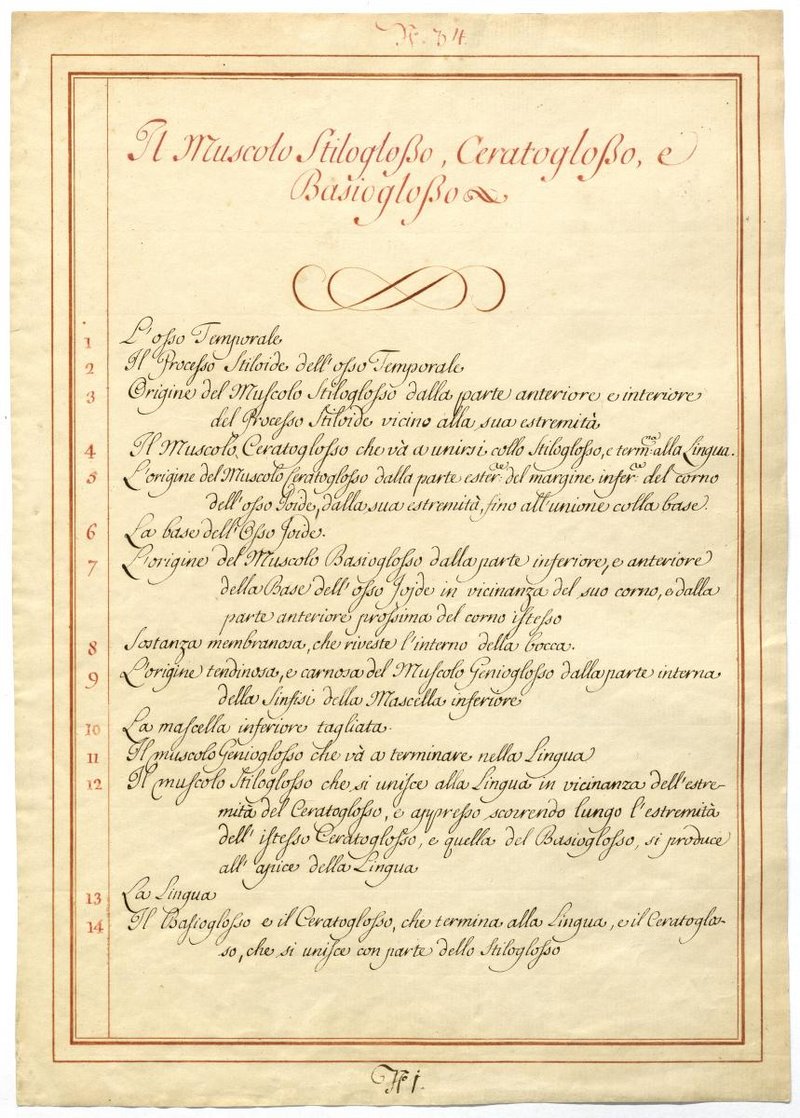 N.º 34.
Il Muscolo Stilogloßo, Ceratogloßo, e
Basiogloßo
1 L'osso Temporale
2 Il Processo Stiloide dell'osso Temporale
3 Origine del Muscolo Stiloglosso dalla parte anteriore e interiore
del Processo Stiloide vicino alla sua estremità
4 Il Muscolo Ceratoglosso che và a unirsi collo Stiloglosso, e term.na alla Lingua.
5 L'origine del Muscolo Ceratoglosso dalla parte ester.re del margine infer.re del corno
dell'osso Joide, dalla sua estremità, fino all'unione colla base.
6 La base dell'Osso Joide.
7 L'origine del Muscolo Basioglosso dalla parte inferiore, e anteriore
della Base dell'osso Jojde in vicinanza del suo corno, e dalla
parte anteriore prossima del corno istesso
8 Sostanza membranosa, che riveste l'interno della bocca.
9 L'origine tendinosa, e carnosa del Muscolo Genioglosso dalla parte interna
della Sinfisi della Mascella inferiore
10 La mascella inferiore tagliata.
11 Il muscolo Genioglosso che và a terminare nella Lingua
12 Il muscolo Stiloglosso che si unisce alla Lingua in vicinanza dell'estre-
mità del Ceratoglosso, e appresso scorrendo lungo l'estremità
dell'istesso Ceratoglosso, e quella del Basioglosso, si produce
all'apice della Lingua
13 La Lingua
14 Il Basioglosso e il Ceratoglosso, che termina alla Lingua, e il Ceratoglos-
so, che si unisce con parte dello Stiloglosso
N.º 1.